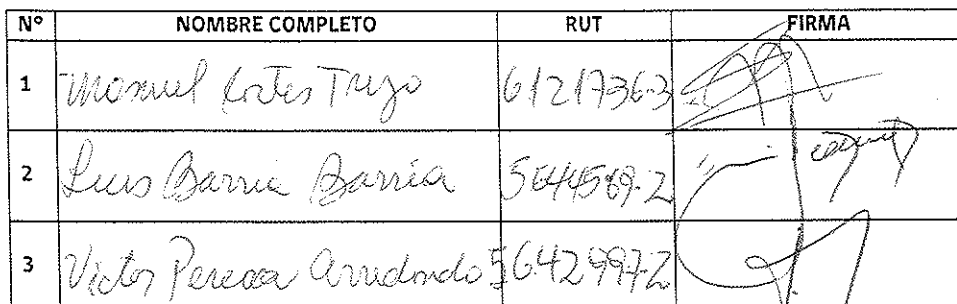 N° NOMBRE COMPLETO RUT FIRMA
1 Manuel Cortes Trejo 6121736-3
2 Luis Barria Barria 5644589-2
3 Victor Arredondo 5642997-2